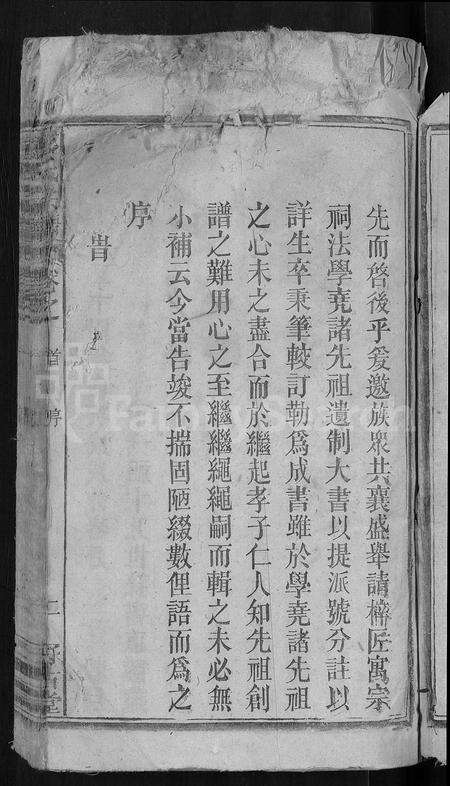 先而啓後乎爰邀族眾共襄盛舉請梓匠寓宗
祠法學堯諸先祖遺制大書以提派號分註以
詳生卒秉筆較訂勒爲成書雖於學堯諸先祖
之心未之盡合而於繼起孝子仁人知先祖創
譜之難用心之至繼繼繩繩嗣而輯之未必無
小補云今當告竣不揣固陋綴數俚語而爲之
序
旹
卷之一
序
二